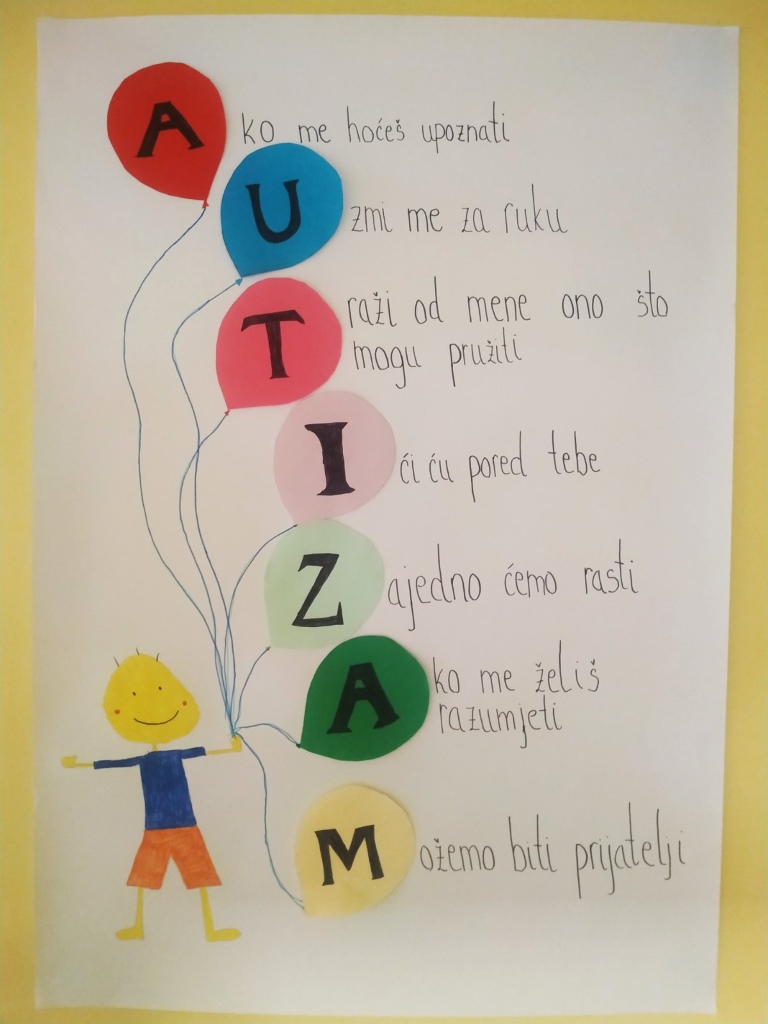 Ako me hoćeš upoznati
Uzmi me za ruku
Traži od mene ono što
mogu pružiti
Ići ću pored tebe
Zajedno ćemo rasti
Ako me želiš
razumjeti
Možemo biti prijatelji